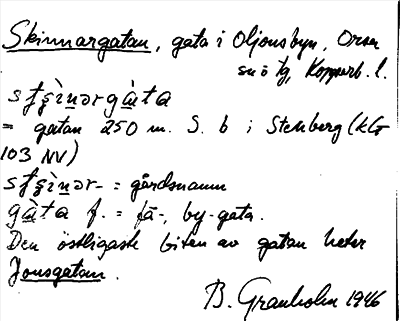 Skinnargatan, gata i Oljonsbyn, Orsa
sn ö tg, Kopparb. l.
gàta
= gatan 250 m. S. b i Stenberg (kG
103 NV)
= gårdsnamn
gàta f. = fä-, by-gata.
Den östligaste biten av gatan heter
Jonsgatan.
B. Granholm 1946